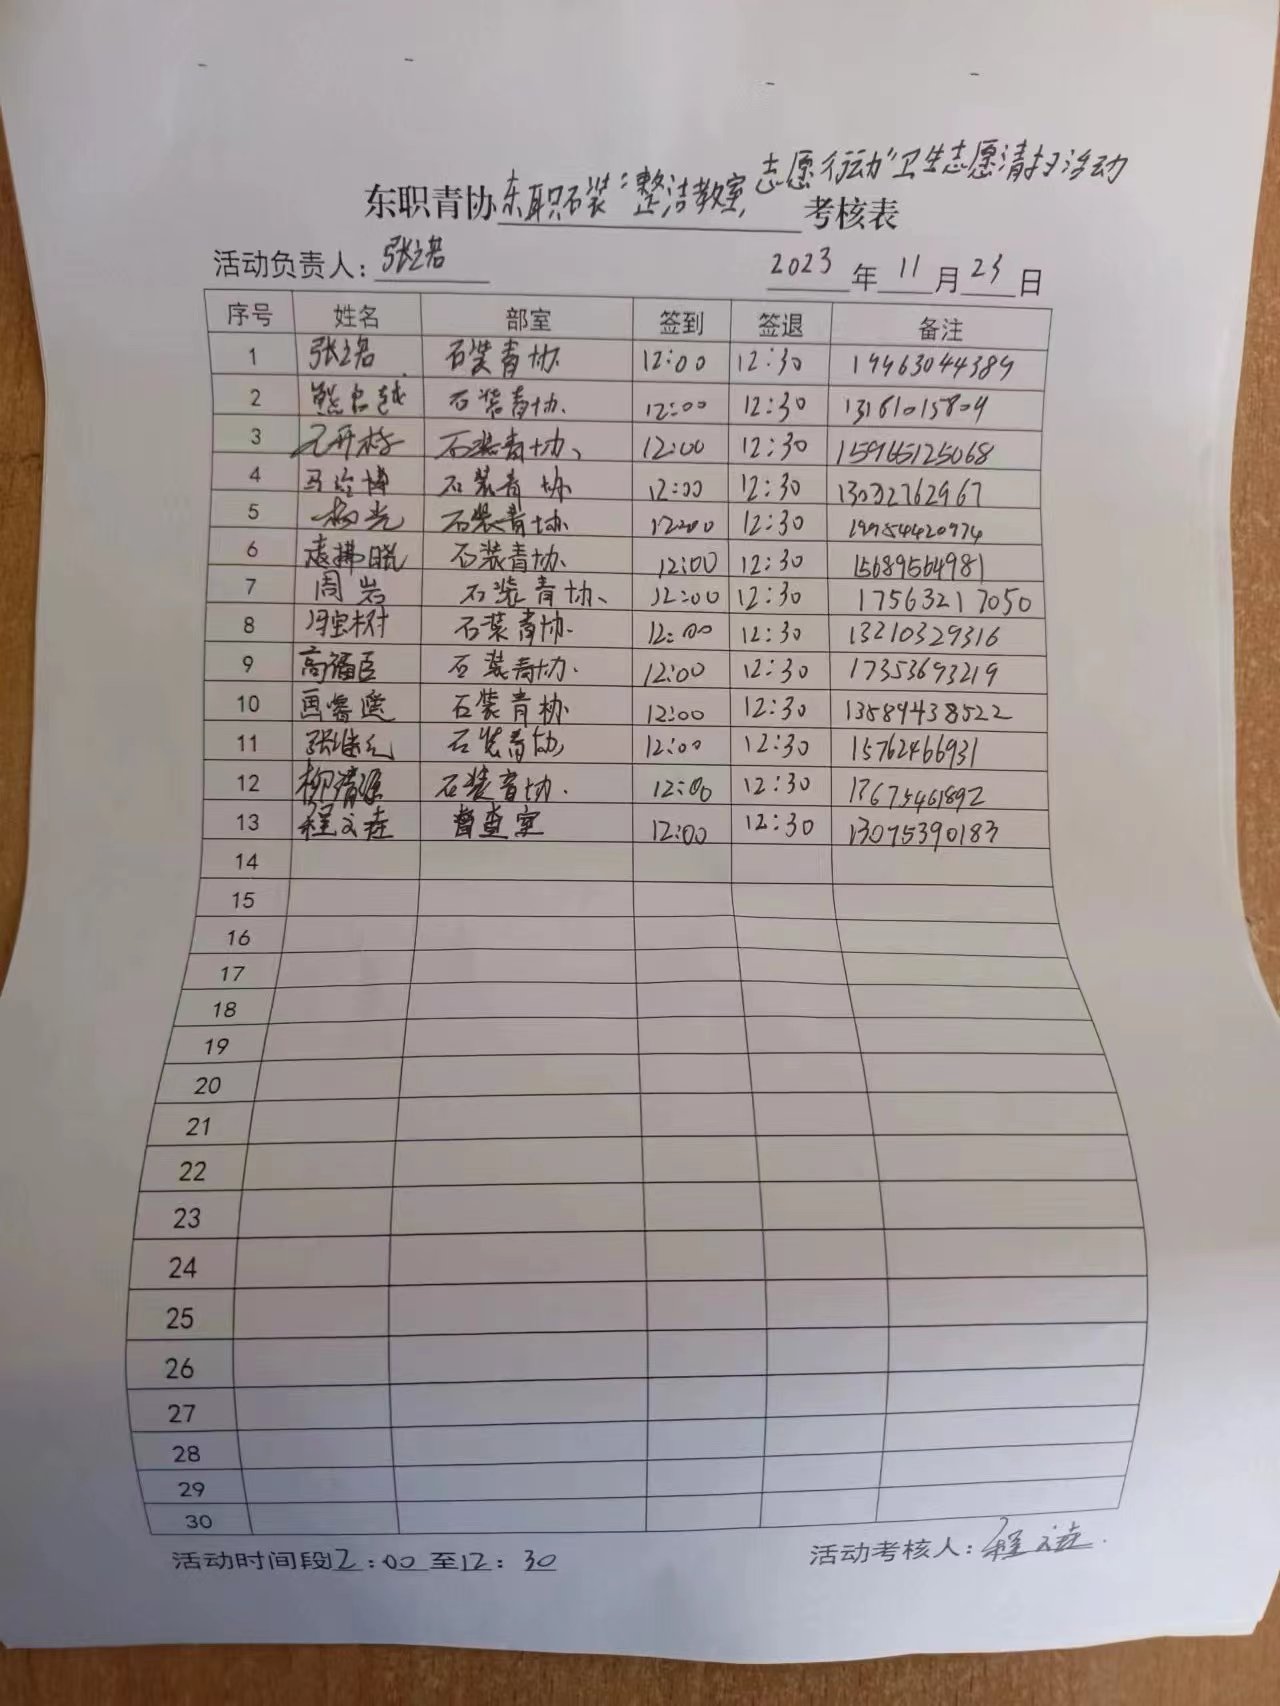 志愿行动"卫生志愿清扫活动
东职青协东职石装"整洁教室,考核表
活动负责人: 2023年11月23日
序号 姓名 部室 签到 签退 备注
1 石装青协. 12:00 12:30 19963044389
2 石装青协. 12:00 12:30
3 石装青协、 12:00 12:30 15965125068
4 石装青协 12:00 12:30
5 杨光 石装青协. 12:00 12:30
6 石装青协. 12:00 12:30 15689564981
7 周岩 石装青协、 12:00 12:30 17563217050
8 冯宝树 石装青协. 12:00 12:30 13210329316
9 高福臣 石装青协. 12:00 12:30 17353693219
10 石装青协 12:00 12:30 13589438522
11 石装青协 12:00 12:30 15762466931
12 柳清源 石装青协. 12:00 12:30 17675461892
13 督查室 12:00 12:30 13075390183
14
15
16
17
18
19
20
21
22
23
24
25
26
27
28
29
30
活动时间段12:00至12:30 活动考核人: